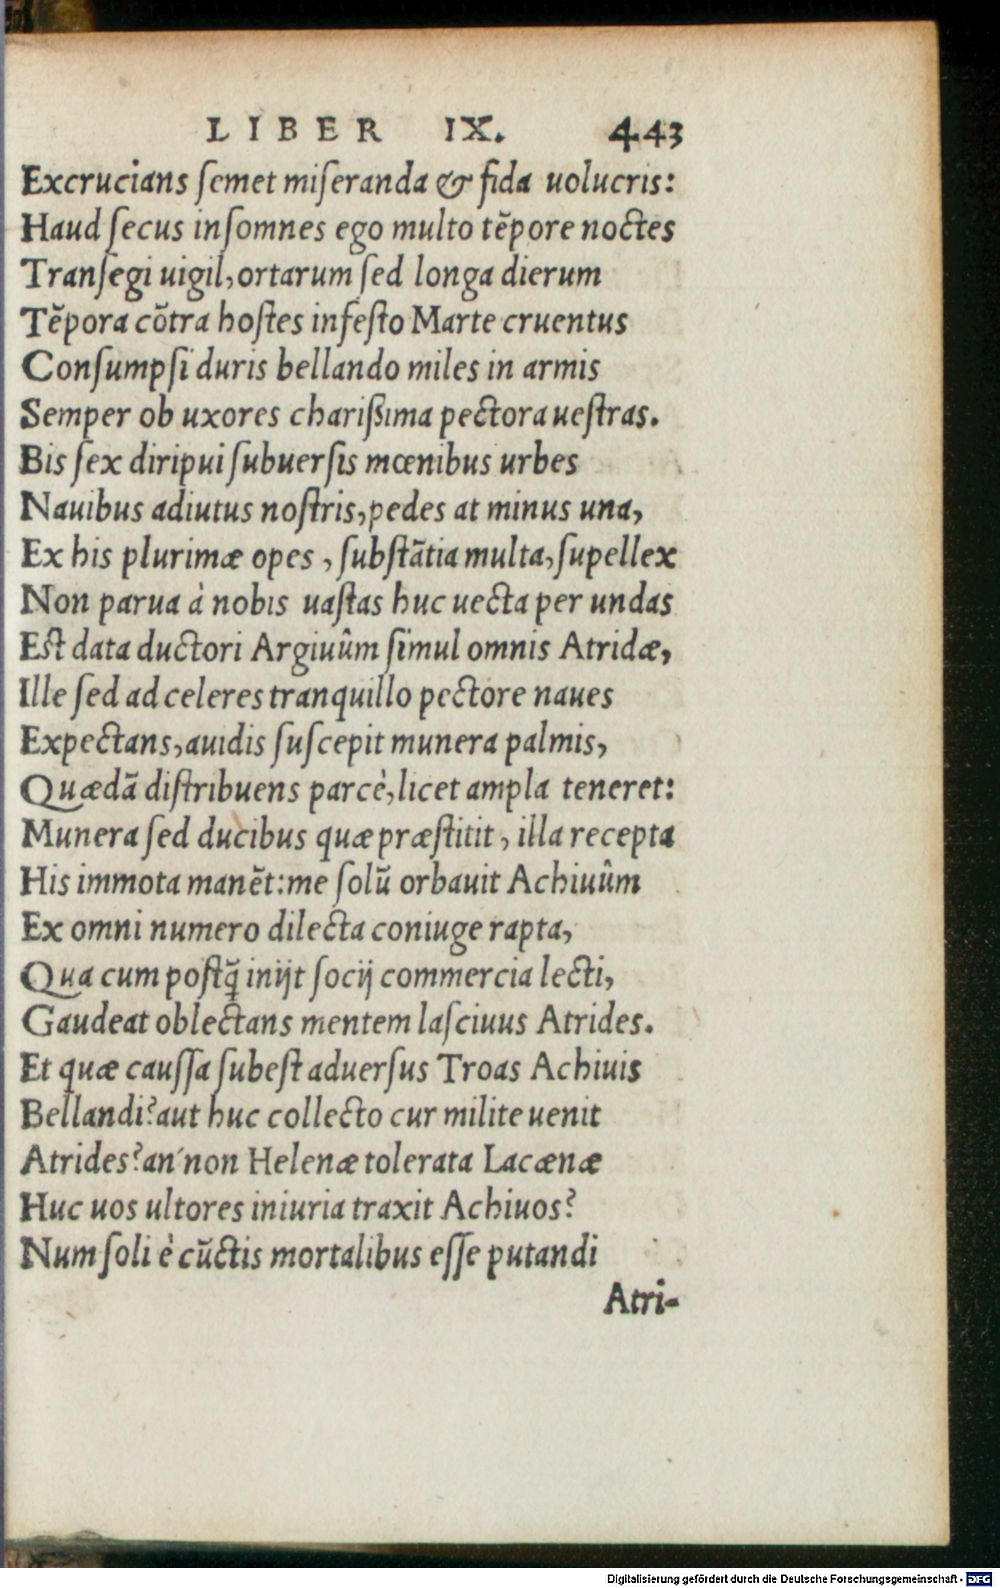 LIBER IX. 443
Excrucians ſemet miſeranda & fida uolucris:
Haud ſecus inſomnes ego multo tẽpore noctes
Tranſegi uigil, ortarum ſed longa dierum
Tẽpora cõtra hoſtes infeſto Marte cruentus
Conſumpſi duris bellando miles in armis
Semper ob uxores charißima pectora ueſtras.
Bis ſex diripui ſubuerſis mœnibus urbes
Nauibus adiutus noſtris, pedes at minus una,
Ex his plurimæ opes, ſubſtãtia multa, ſupellex
Non parua à nobis uaſtas huc uecta per undas
Eſt data ductori Argiuûm ſimul omnis Atridæ,
Ille ſed ad celeres tranquillo pectore naues
Expectans, auidis ſuſcepit munera palmis,
Quædã diſtribuens parcè, licet ampla teneret:
Munera ſed ducibus quæ præſtitit, illa recepta
His immota manẽt: me ſolũ orbauit Achiuûm
Ex omni numero dilecta coniuge rapta,
Qua cum poſtq̃ inijt ſocij commercia lecti,
Gaudeat oblectans mentem laſciuus Atrides.
Et quæ cauſſa ſubeſt aduerſus Troas Achiuis
Bellandi? aut huc collecto cur milite uenit
Atrides? an´non Helenæ tolerata Lacænæ
Huc uos ultores iniuria traxit Achiuos?
Num ſoli è cũctis mortalibus eſſe putandi
Atri-
Digitalisierung gefördert durch die Deutsche Forschungsgemeinschaft - DFG